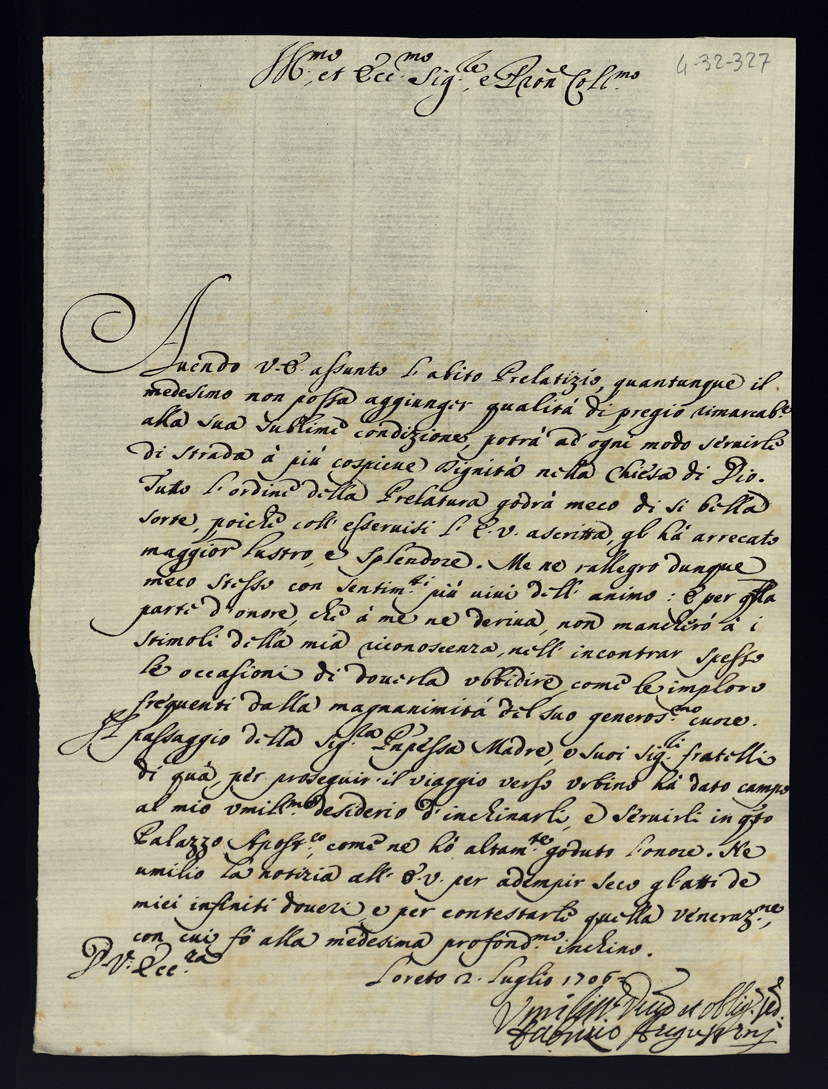 4-32-327
Ill.mo, et Ecc.mo Sig.re, e Pron Coll.mo
Auendo V. E. assunto l'abito Prelatizio, quantunque il
medesimo non possa aggiunger qualità di pregio rimarcab.e
alla sua sublime condizione, potrà ad ogni modo seruirle
di strada à più cospicue dignità nella Chiesa di Dio.
Tutto l'ordine della Prelatura godrà meco di sì bella
sorte, poiche coll' esseruisi l'E. V. ascritta, gl' hà arrecato
maggior lustro, e splendore. Me ne rallegro dunque
meco stesso con sentim.ti più uiui dell' animo: E per qlla
parte d'onore, che à me ne deriua, non mancherò à i
stimoli della mia riconoscenza, nell' incontrar spesso
le occasioni di douerla ubbidire, come le imploro
frequenti dalla magnanimità del suo generos.mo cuore.
Il passaggio della Sig.ra Pnpessa Madre, e suoi Sig.ri fratelli
di quà, per proseguir il viaggio uerso Urbino hà dato campo
al mio umil.mo desiderio d'inchinarli, e seruirli in qsto
Palazzo Apost.co, come ne hò altam.te goduto l'onore. Ne
umilio la notizia all' E. V. per adempir seco gl' atti de
miei infiniti doueri, e per contestarle quella ueneraz.ne,
con cui fò alla medesima profond.mo inchino.
D. V. Ecc.za
Loreto 2. Luglio 1706
Umiliss.o Diuo et oblig. Ser.
Fabrizio